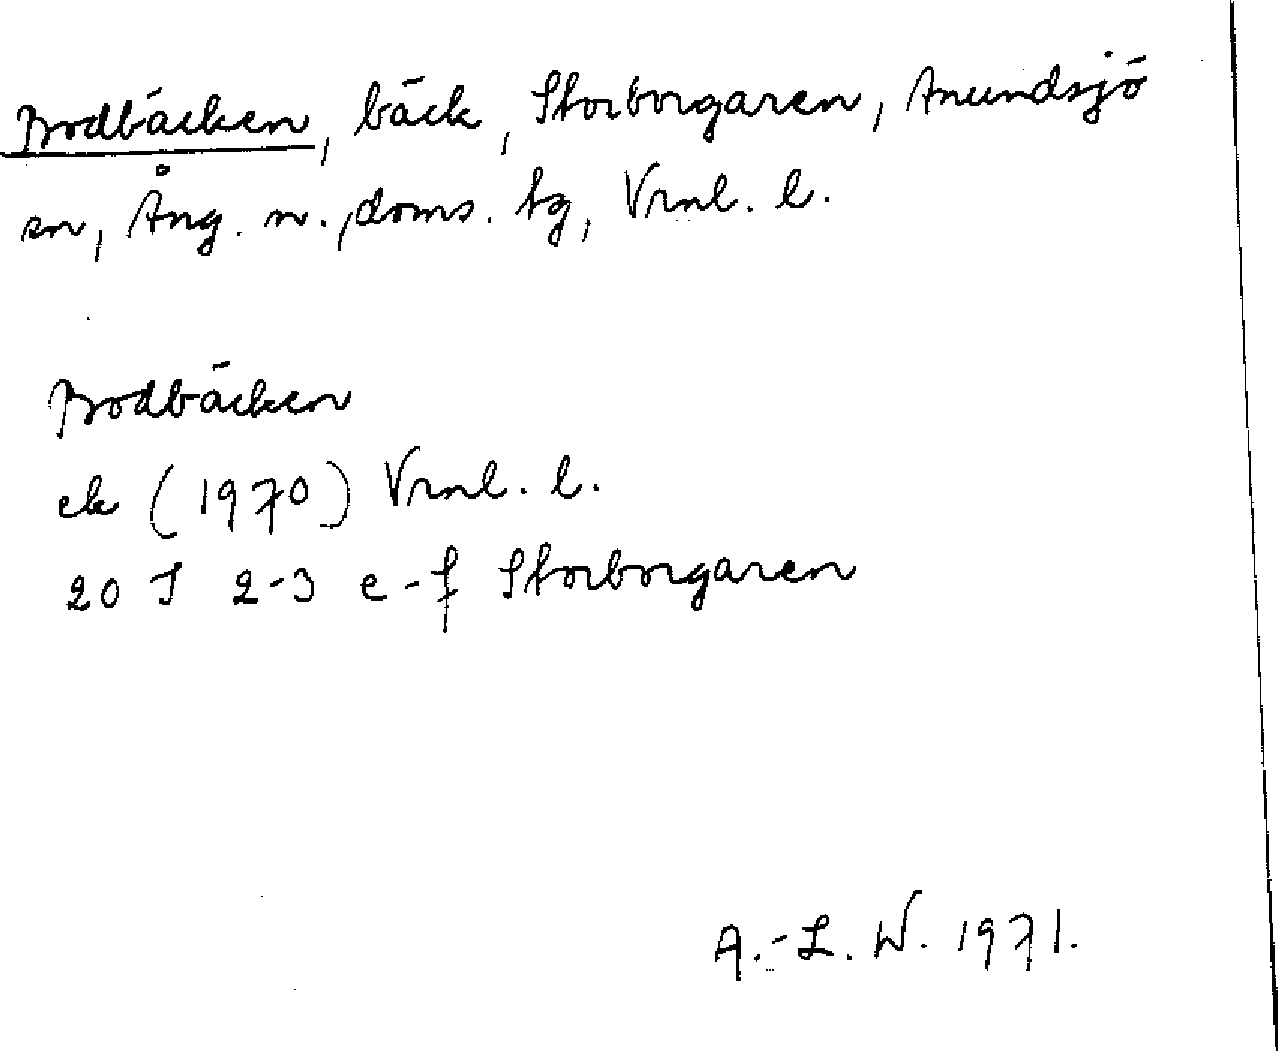 Bodbäcken, bäck, Storborgaren, Anundsjö
sn, Ång. n., doms. tg, Vrml. l.
Bodbäcken
ek (1970) Vrml. l.
20 J 2-3 e-f Storborgaren
A.-L. W. 1971.